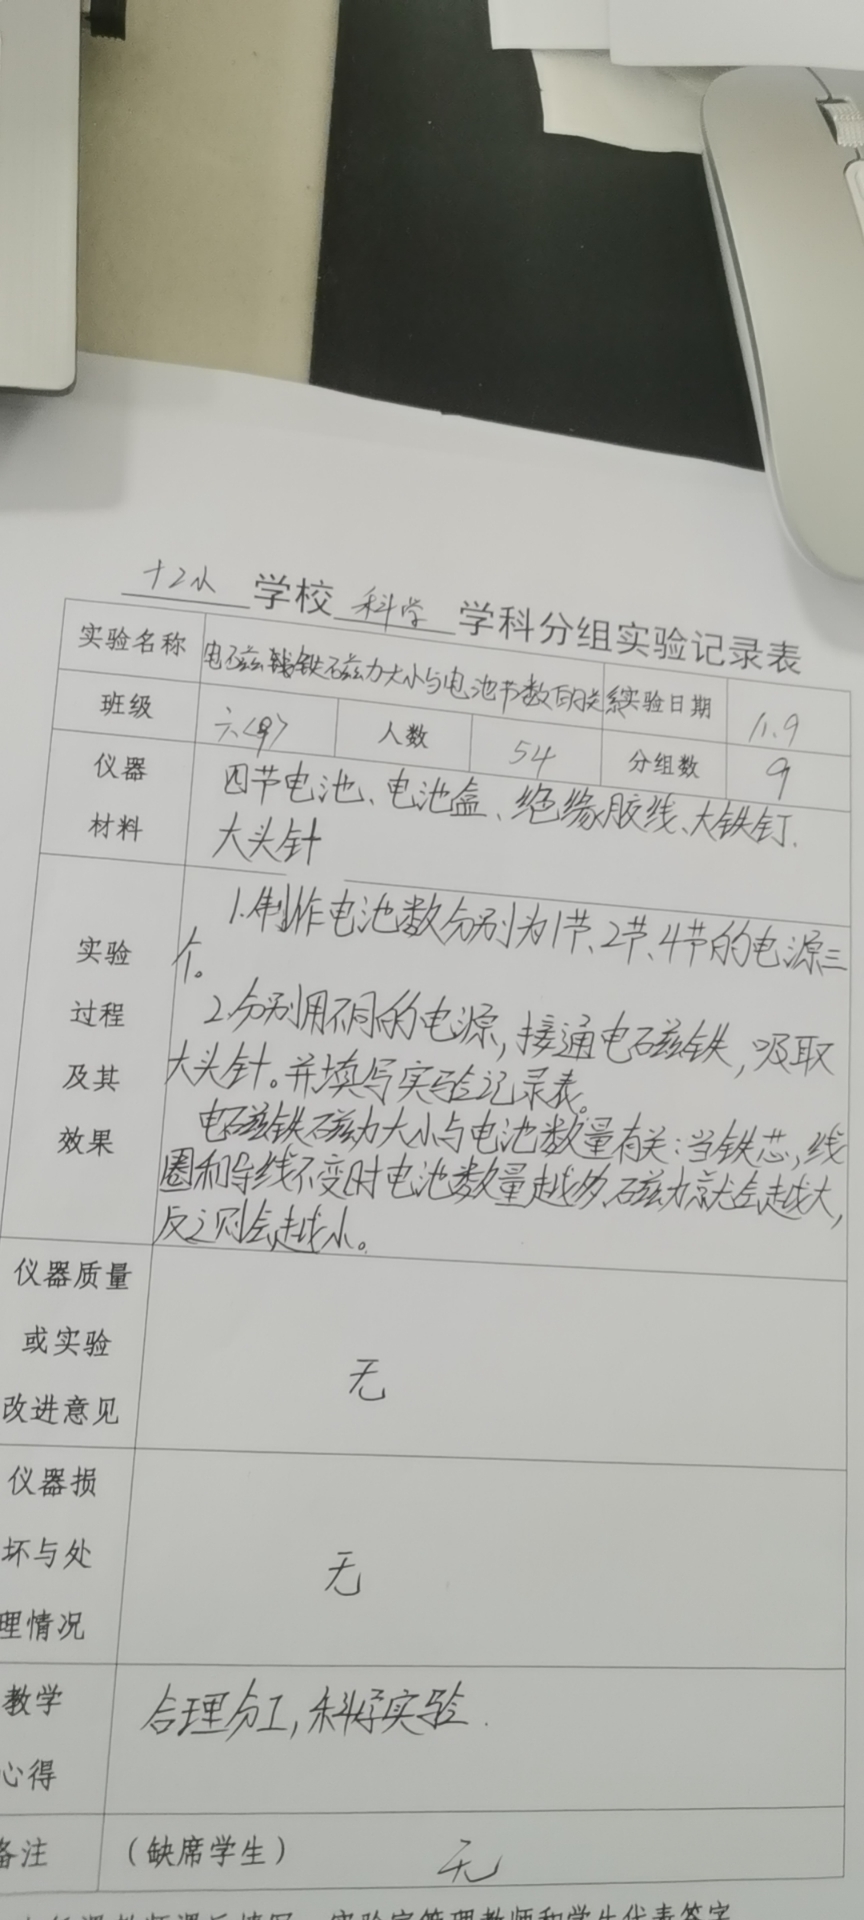 十2小 学校 科学 学科分组实验记录表
实验名称 电磁铁磁力大小与电池节数的关系 实验日期 11.9
班级 六 人数 54 分组数 9
仪器材料 四节电池、电池盒、绝缘胶线、大铁钉.
大头针
实验过程及其效果
1.制作电池数分别为1节、2节、4节的电源三
个。
2.分别用不同的电源,接通电磁铁,吸取
大头针。并填写实验记录表。
电磁铁磁力大小与电池数量有关:当铁芯,线
圈和导线不变时电池数量越多,磁力就会越大,
反之则会越小。
仪器质量
或实验
改进意见
无
仪器损
坏与处
理情况
无
教学
心得
合理分工,科学实验.
备注 (缺席学生) 无